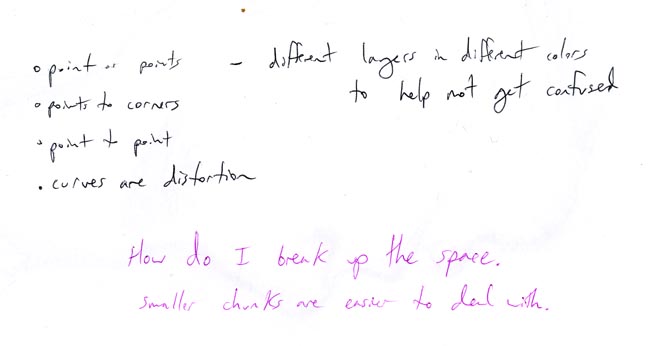 point or points - different layers in different colors
to help not get confused
points to corners
point to point
curves are distortion
How do I break up the space.
smaller chunks are easier to deal with.